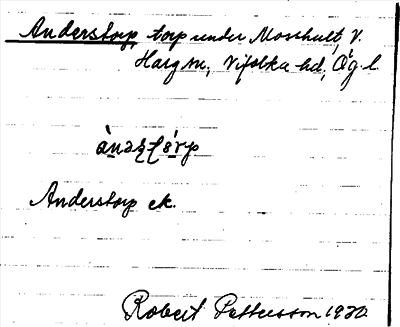 Anderstorp torp under Mosshult, V.
Harg sn, Vifolka hd, Ög. l.
Anderstorp ek.
Robert Pettersson 1930